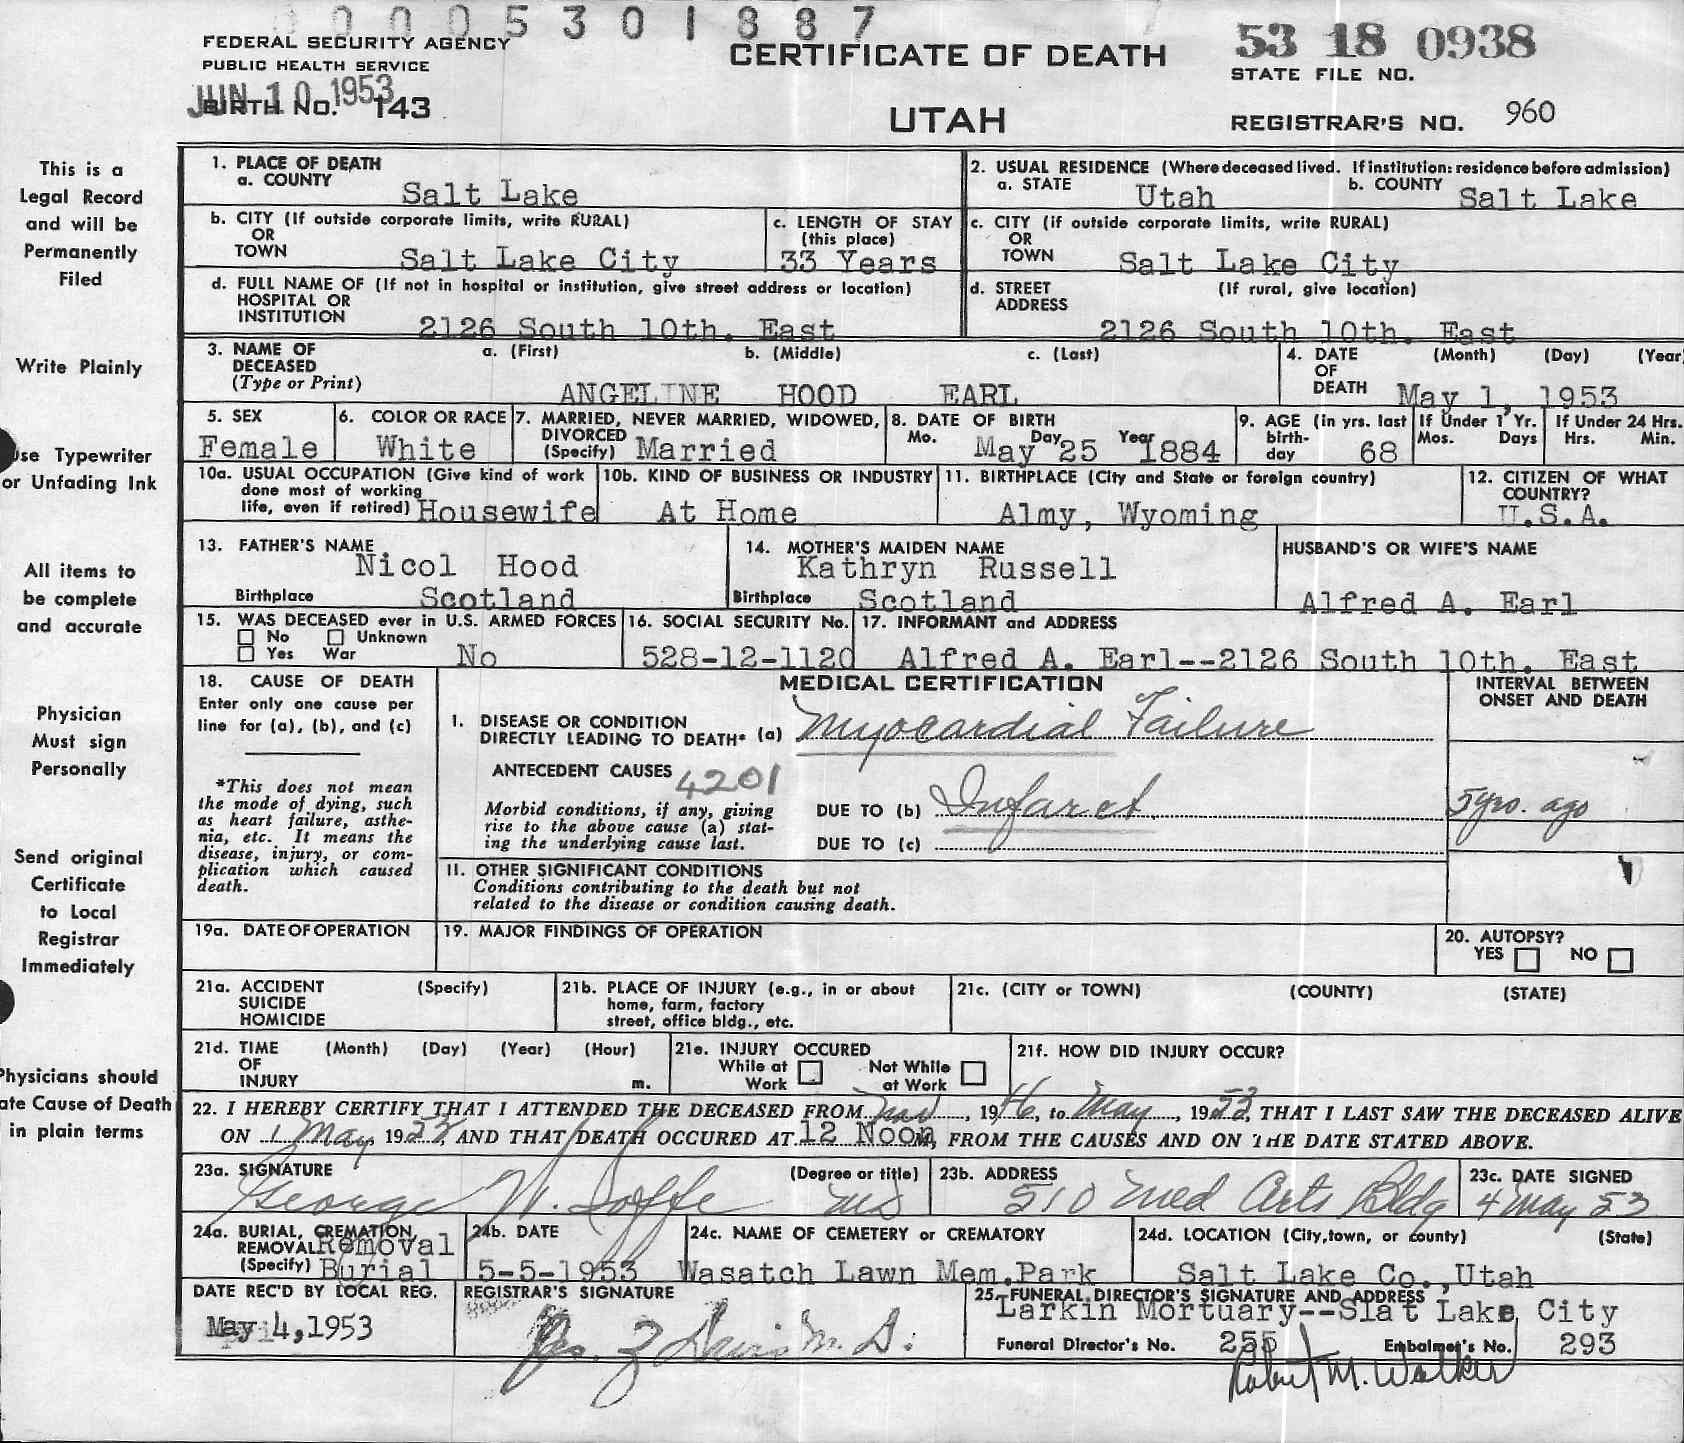 0 0 0 5 3 0 1 8 8 7
FEDERAL SECURITY AGENCY
PUBLIC HEALTH SERVICE
JUN 10 1953
BIRTH NO. 143
CERTIFICATE OF DEATH
UTAH
53 18 0938
STATE FILE NO.
REGISTRAR'S NO. 960
This is a
Legal Record
and will be
Permanently
Filed
Write Plainly
Use Typewriter
or Unfading Ink
All items to
be complete
and accurate
Physician
Must sign
Personally
Send original
Certificate
to Local
Registrar
Immediately
Physicians should
ate Cause of Death
in plain terms
1. PLACE OF DEATH
a. COUNTY Salt Lake
2. USUAL RESIDENCE (Where deceased lived. If institution: residence before admission)
a. STATE Utah b. COUNTY Salt Lake
b. CITY (If outside corporate limits, write RURAL)
OR
TOWN Salt Lake City
c. LENGTH OF STAY
(this place)
33 Years
c. CITY (if outside corporate limits, write RURAL)
OR
TOWN Salt Lake City
d. FULL NAME OF (If not in hospital or institution, give street address or location)
HOSPITAL OR
INSTITUTION
2126 South 10th. East
d. STREET (If rural, give location)
ADDRESS
2126 South 10th. East
3. NAME OF a. (First) b. (Middle) c. (Last)
DECEASED
(Type or Print)
ANGELINE HOOD EARL
4. DATE (Month) (Day) (Year
OF
DEATH May 1, 1953
5. SEX
Female
6. COLOR OR RACE
White
7. MARRIED, NEVER MARRIED, WIDOWED,
DIVORCED
(Specify) Married
8. DATE OF BIRTH
Mo. Day Year
May 25 1884
9. AGE (in yrs. last
birth-
day 68
If Under 1 Yr.
Mos. Days
If Under 24 Hrs.
Hrs. Min.
10a. USUAL OCCUPATION (Give kind of work
done most of working
life, even if retired) Housewife
10b. KIND OF BUSINESS OR INDUSTRY
At Home
11. BIRTHPLACE (City and State or foreign country)
Almy, Wyoming
12. CITIZEN OF WHAT
COUNTRY?
U.S.A.
13. FATHER'S NAME
Nicol Hood
Birthplace Scotland
14. MOTHER'S MAIDEN NAME
Kathryn Russell
Birthplace Scotland
HUSBAND'S OR WIFE'S NAME
Alfred A. Earl
15. WAS DECEASED ever in U.S. ARMED FORCES
No Unknown
Yes War No
16. SOCIAL SECURITY No.
528-12-1120
17. INFORMANT and ADDRESS
Alfred A. Earl--2126 South 10th. East
18. CAUSE OF DEATH
Enter only one cause per
line for (a), (b), and (c)
*This does not mean
the mode of dying, such
as heart failure, asthe-
nia, etc. It means the
disease, injury, or com-
plication which caused
death.
MEDICAL CERTIFICATION
INTERVAL BETWEEN
ONSET AND DEATH
1. DISEASE OR CONDITION
DIRECTLY LEADING TO DEATH* (a) Myocardial Failure
ANTECEDENT CAUSES 4201
Morbid conditions, if any, giving
rise to the above cause (a) stat-
ing the underlying cause last.
DUE TO (b) Infarct 5 yrs. ago
DUE TO (c)
11. OTHER SIGNIFICANT CONDITIONS
Conditions contributing to the death but not
related to the disease or condition causing death.
19a. DATE OF OPERATION
19. MAJOR FINDINGS OF OPERATION
20. AUTOPSY?
YES NO
21a. ACCIDENT (Specify)
SUICIDE
HOMICIDE
21b. PLACE OF INJURY (e.g., in or about
home, farm, factory
street, office bldg., etc.
21c. (CITY or TOWN) (COUNTY) (STATE)
21d. TIME (Month) (Day) (Year) (Hour)
OF
INJURY m.
21e. INJURY OCCURED
While at Work Not While at Work
21f. HOW DID INJURY OCCUR?
22. I HEREBY CERTIFY THAT I ATTENDED THE DECEASED FROM , 1946, to May, 1953, THAT I LAST SAW THE DECEASED ALIVE
ON 1 May, 1953, AND THAT DEATH OCCURED AT 12 Noon, FROM THE CAUSES AND ON THE DATE STATED ABOVE.
23a. SIGNATURE (Degree or title)
George W. Soffe MD
23b. ADDRESS
510 Med Arts Bldg
23c. DATE SIGNED
4 May 53
24a. BURIAL, CREMATION,
REMOVAL Removal
(Specify) Burial
24b. DATE
5-5-1953
24c. NAME OF CEMETERY OR CREMATORY
Wasatch Lawn Mem.Park
24d. LOCATION (City, town, or county) (State)
Salt Lake Co., Utah
DATE REC'D BY LOCAL REG.
May 4, 1953
REGISTRAR'S SIGNATURE
Davis M. D.
25. FUNERAL DIRECTOR'S SIGNATURE AND ADDRESS
Larkin Mortuary--Slat Lake City
Funeral Director's No. 255 Embalmer's No. 293
Robert M. Walker